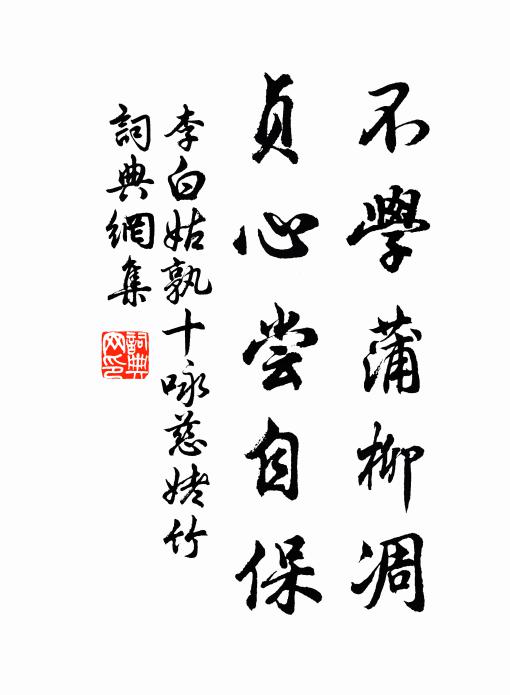 不學蒲柳凋
貞心尝自保
李白姑孰十咏慈姥竹
詞典網集
詞典
网印